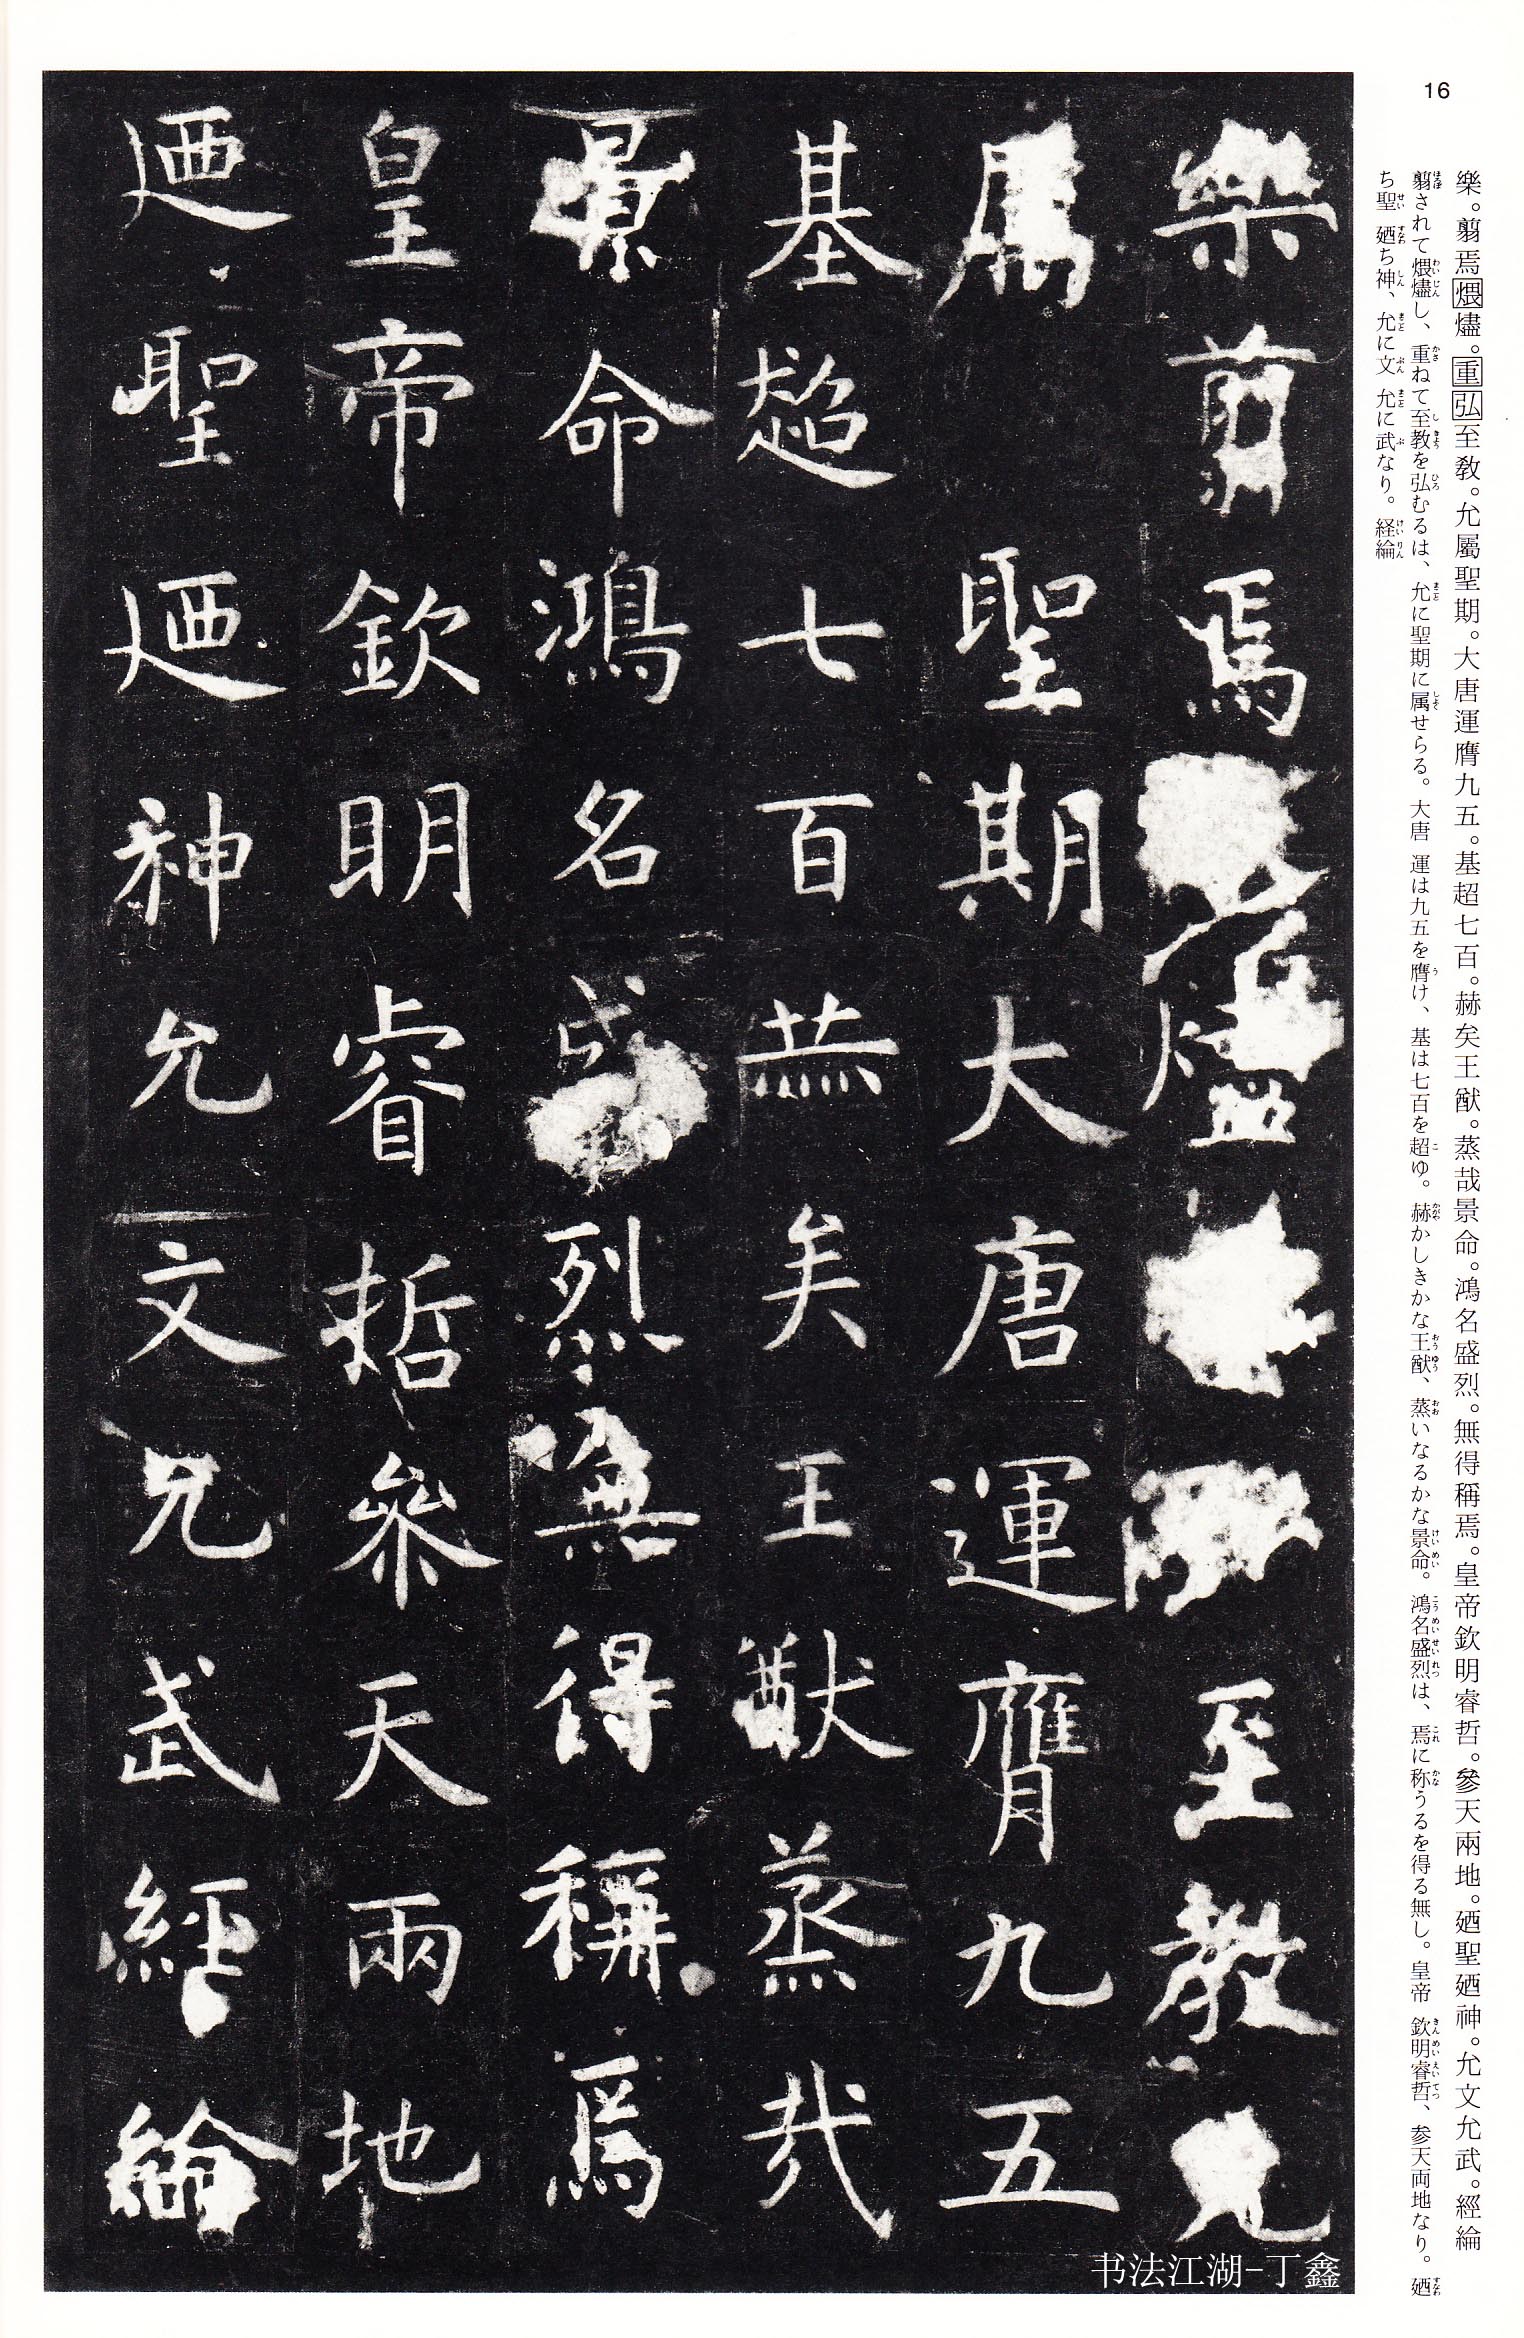 16
樂。翦焉煨燼。重弘至教。允屬聖期。大唐運膺九五。基超七百。赫矣王猷。蒸哉景命。鴻名盛烈。無得稱焉。皇帝欽明睿哲。參天兩地。廼聖廼神。允文允武。經綸
翦されて煨燼し、重ねて至教を弘むるは、允に聖期に属せらる。大唐 運は九五を膺け、基は七百を超ゆ。赫かしきかな王猷、蒸いなるかな景命。鴻名盛烈は、焉に称うるを得る無し。皇帝 欽明睿哲、参天両地なり。廼
ち聖 廼ち神、允に文 允に武なり。経綸
樂翦焉燼至教允
屬聖期大唐運膺九五
基超七百赫矣王猷蒸哉
景命鴻名盛烈無得稱焉
皇帝欽明睿哲參天兩地
廼聖廼神允文允武經綸
书法江湖-丁鑫